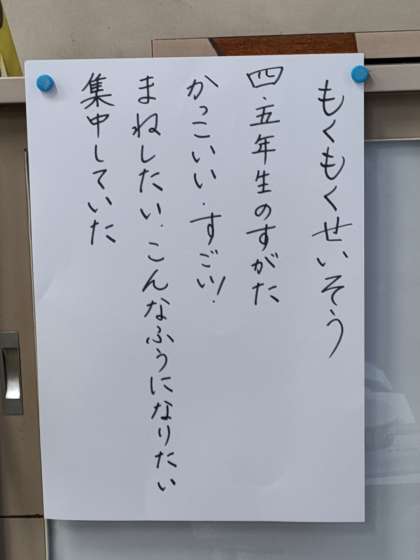 もくもくせいそう
四・五年生のすがた
かっこいい・すごい!
まねしたい・こんなふうになりたい
集中していた